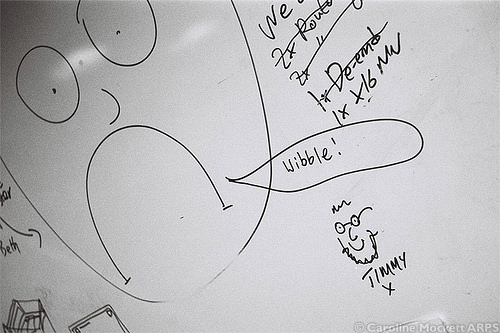 We
2x Route
2x "
1x De-emb
1x X16 MN
Wibble!
TIMMY
X
Beth
© Caroline Mockett ARPS